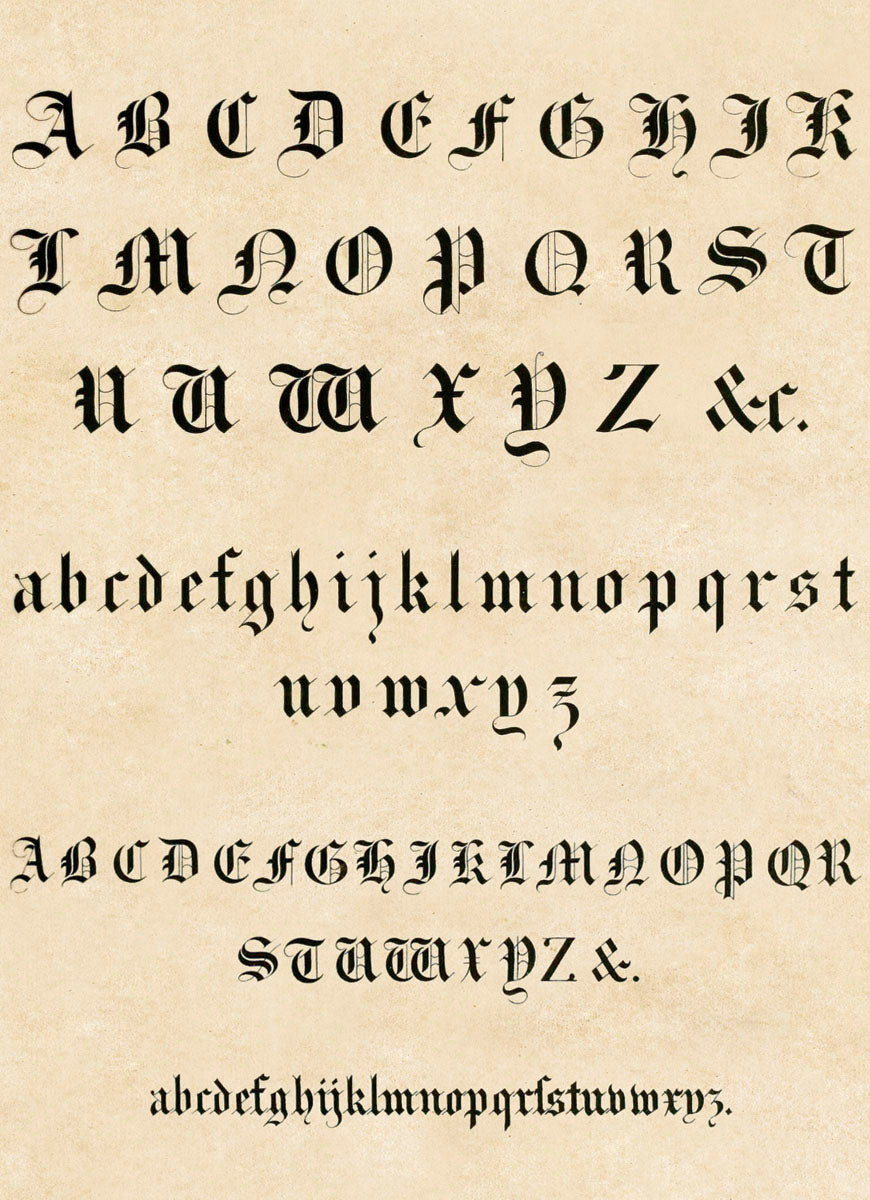 A B C D E F G H I K
L M N O P Q R S T
U V W X Y Z &c.
a b c d e f g h i j k l m n o p q r s t
u v w x y z
A B C D E F G H I K L M N O P Q R
S T U W X Y Z &.
abcdefghijklmnopqrſstuvwxyz.